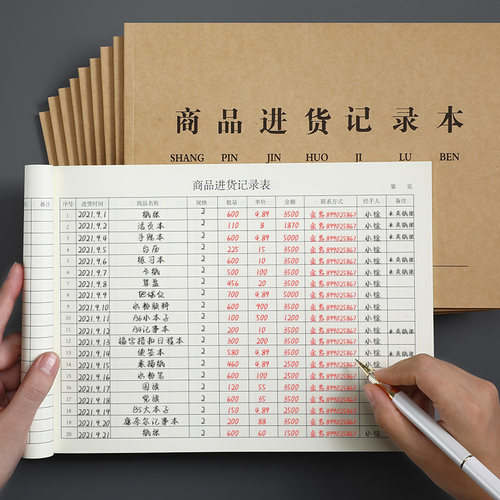 商品进货记录本
SHANG PIN JIN HUO JI LU BEN
商品进货记录表
第 页
备注
序号 进货时间 商品名称 规格 数量 单价 金额 联系方式 经手人 备注
1 2021.9.1 纸张 2 600 4.89 3500 899025867 小徐
2 2021.9.2 活页本 2 110 8 1870 899025867 小徐
3 2021.9.4 手账本 2 600 4.89 5000 899025867 小徐
4 2021.9.5 台历 2 225 15 3500 899025867 小徐
5 2021.9.6 练习本 2 600 10 3500 899025867 小徐
6 2021.9.7 卡纸 2 500 100 3500 899025867 小徐
7 2021.9.8 算盘 2 456 20 3500 899025867 小徐
8 2021.9.9 地球仪 2 700 4.89 5000 899025867 小徐
9 2021.9.10 水粉颜料 2 600 900 3500 899025867 小徐
10 2021.9.11 A6小本子 2 100 500 1200 899025867 小徐
11 2021.9.12 A4记事本 2 200 10 3500 899025867 小徐
12 2021.9.13 2 300 200 3500 899025867 小徐
13 2021.9.14 便签本 2 580 4.89 3500 899025867 小徐
14 2021.9.15 素描纸 2 460 4.89 2500 899025867 小徐
15 2021.9.16 水粉笔 2 600 100 2500 899025867 小徐
16 2021.9.17 国旗 2 120 55 3500 899025867 小徐
17 2021.9.18 党旗 2 600 35 3500 899025867 小徐
18 2021.9.19 B5大本子 2 150 4.89 3500 899025867 小徐
19 2021.9.20 康奈尔记事本 2 200 4.89 2500 899025867 小徐
20 2021.9.21 纸张 2 600 60 1500 899025867 小徐